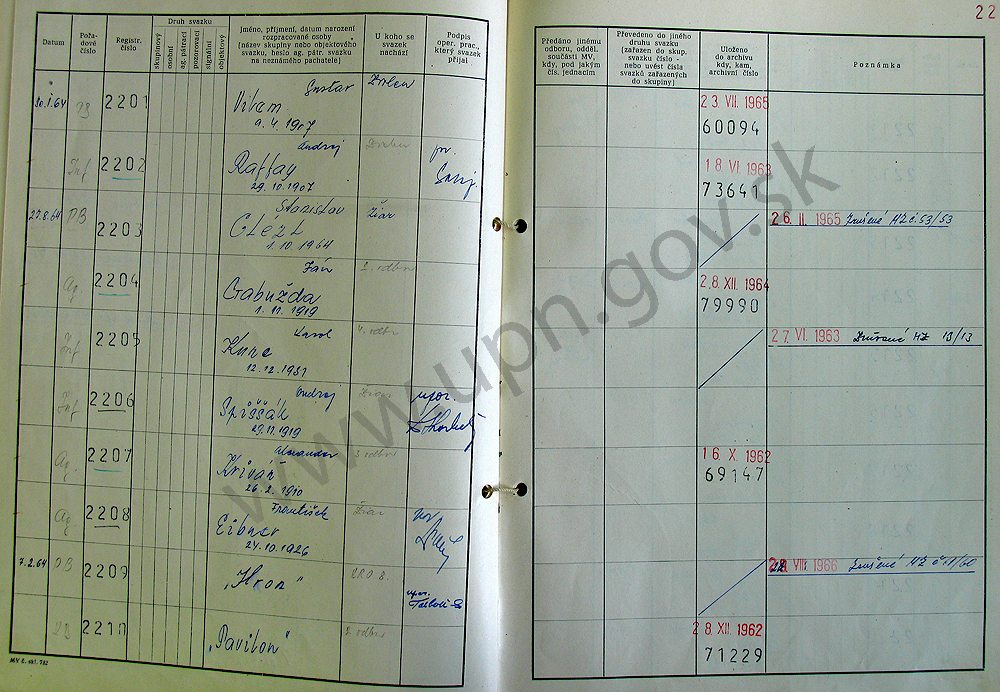 22
Datum
Pořa-
dové
číslo
Registr.
číslo
Druh svazku
skupinový
osobní
ag. pátrací
pozorovací
signální
objektový
Jméno, příjmení, datum narození
rozpracované osoby
(název skupiny nebo objektového
svazku, heslo ag. pátr. svazku
na neznámého pachatele)
U koho se
svazek
nachází
Podpis
oper. prac.,
který svazek
přijal
Předáno jinému
odboru, odděl.
součásti MV,
kdy, pod jakým
čís. jednacím
Převedeno do jiného
druhu svazku
(zařazen do skup.
svazku číslo -
nebo uvést čísla
svazků zařazených
do skupiny)
Uloženo
do archivu
kdy, kam,
archivní číslo
Poznámka
2201
Gustav
Vitam
9.4.1907
Zvolen
23. VII. 1965
60094
Inf
2202
Ondrej
Raffay
29.10.1907
18. VI 1963
73641
27.8.64
2203
Stanislav
1.10.1964
Žiar
26. II. 1965 Zrušené MZ č. 53/53
Ag.
2204
Ján
Gabužda
1.11.1919
2. odbor
2.8. XII. 1964
79990
Inf
2205
Karol
Kunc
12.12.1931
4. odbor
27. VI. 1963
MZ 13/13
Inf
2206
Ondrej
Spiššák
29.11.1919
Ag.
2207
Alexander
Kriváň
26.2.1910
3. odbor
16. X. 1962
69147
Ag.
2208
František
Eibner
24.10.1926
Žiar
7.2.64
2209
"Hron"
VIII 1966 Zrušené MZ č.
2210
"Pavilon"
2. odbor
28 XII. 1962
71229
MV č. skl. 782
www.upn.gov.sk